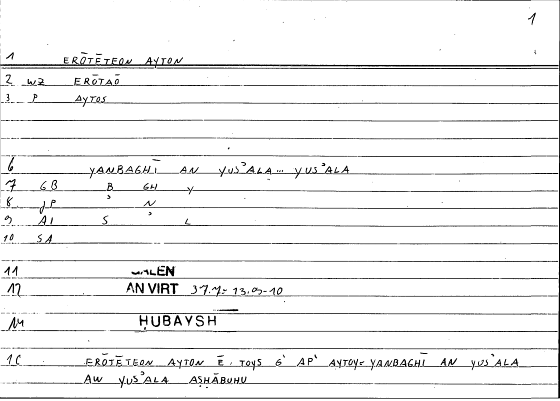 1
1 ERŌTĒTEON AYTON
2 WZ ERŌTAŌ
3 P AYTOS
6 YANBAGHĪ AN YUSʾALA... YUSʾALA
7 GB B GH Y
8 JP ʾ N
9 AI S ʾ L
10 SA
11 GALEN
12 AN VIRT 37.7= 13.9-10
14 ḤUBAYSH
15 ERŌTĒTEON AYTON Ē. TOYS G' AP' AYTOY= YANBAGHĪ AN YUSʾALA
AW YUSʾALA AṢḤĀBUHU